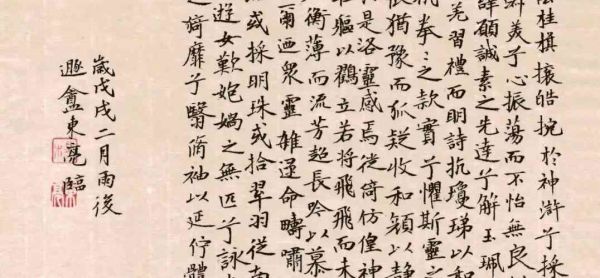 桂旗攘皓腕於神滸兮採
美兮心振蕩而不怡無良
辭願誠素之先達兮解玉珮
羌習禮而明詩抗瓊珶以和
執拳々之款實兮懼斯靈之
悵猶豫而狐疑收和顏以靜
是洛靈感焉徙倚彷徨神
軀以鶴立若將飛飛而未
衡薄而流芳超長吟以慕
爾迺眾靈雜遝命疇嘯
或採明珠或拾翠羽從南
遊女歎匏媧之無匹兮詠
之猗靡兮翳脩袖以延佇體
歲戊戌二月雨後
遯盦東亮臨